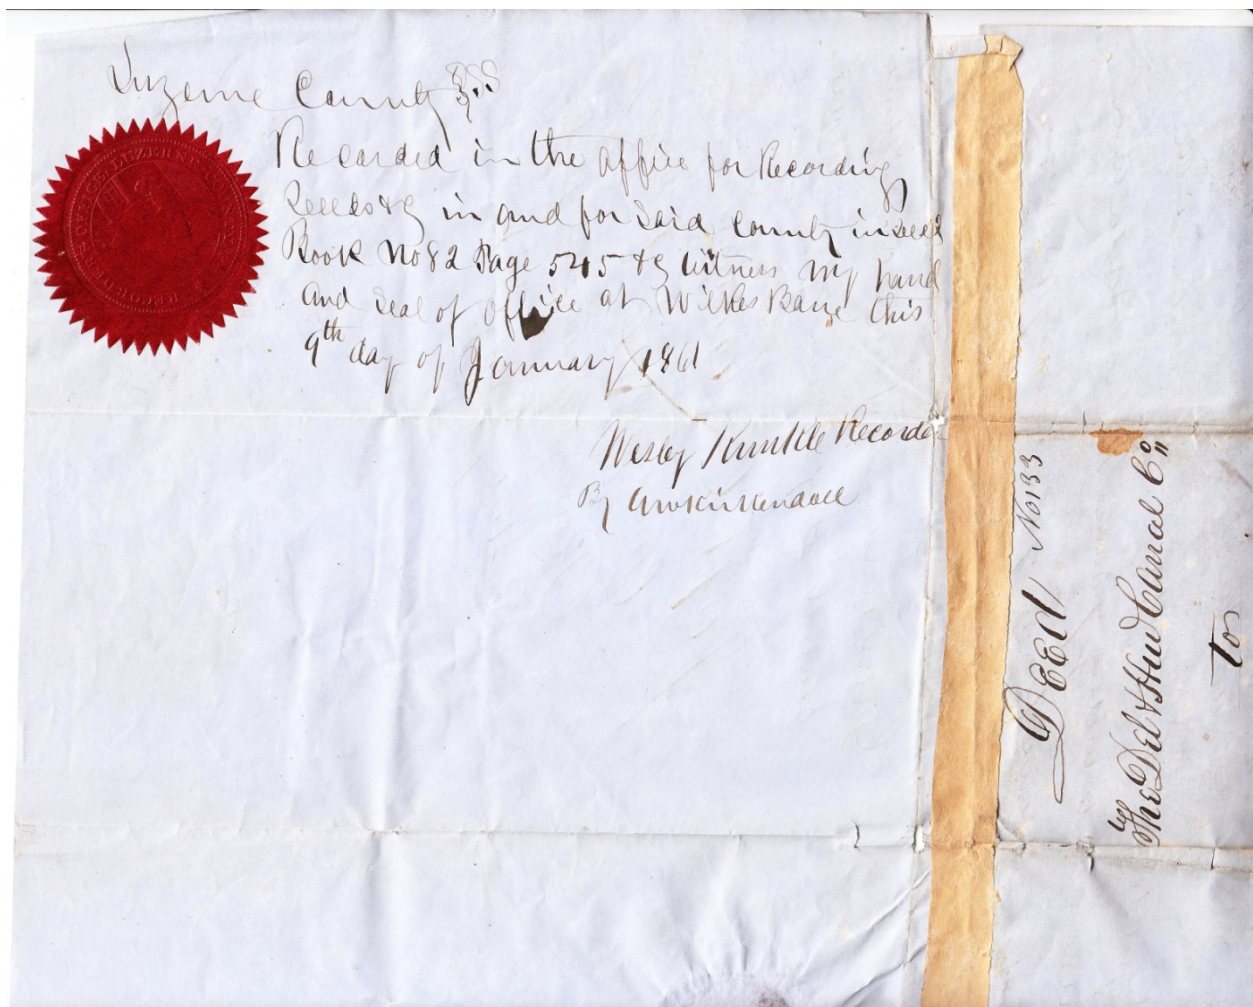 Luzerne County SS
Recorded in the office for Recording
Deeds &c in and for said County in deed
Book No 82 Page 545 &c Witness my hand
and seal of office at Wilkes Barre this
9th day of January 1861
Wesley Kunkle Recorder
By
RECORDER'S OFFICE, LUZERNE COUNTY
DEED No 133
The Del & Hud Canal Co
to